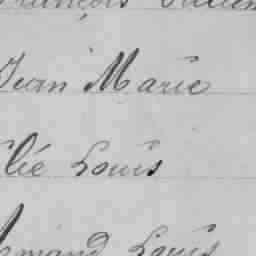 François
Jean Marie
lié Louis
Armand Louis